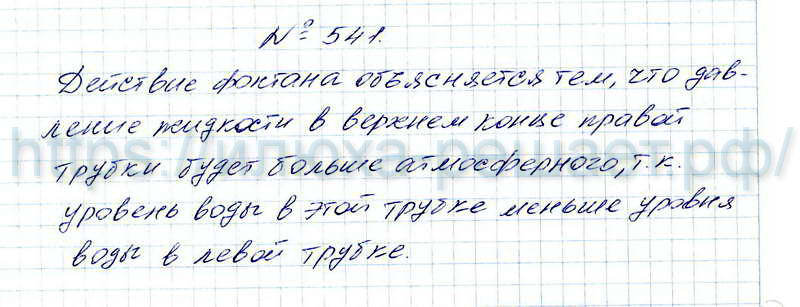 № 541.
Действие фонтана объясняется тем, что дав-
ление жидкости в верхнем конце правой
https://илюха-решает.рф/
трубки будет больше атмосферного, т.к.
уровень воды в этой трубке меньше уровня
воды в левой трубке.